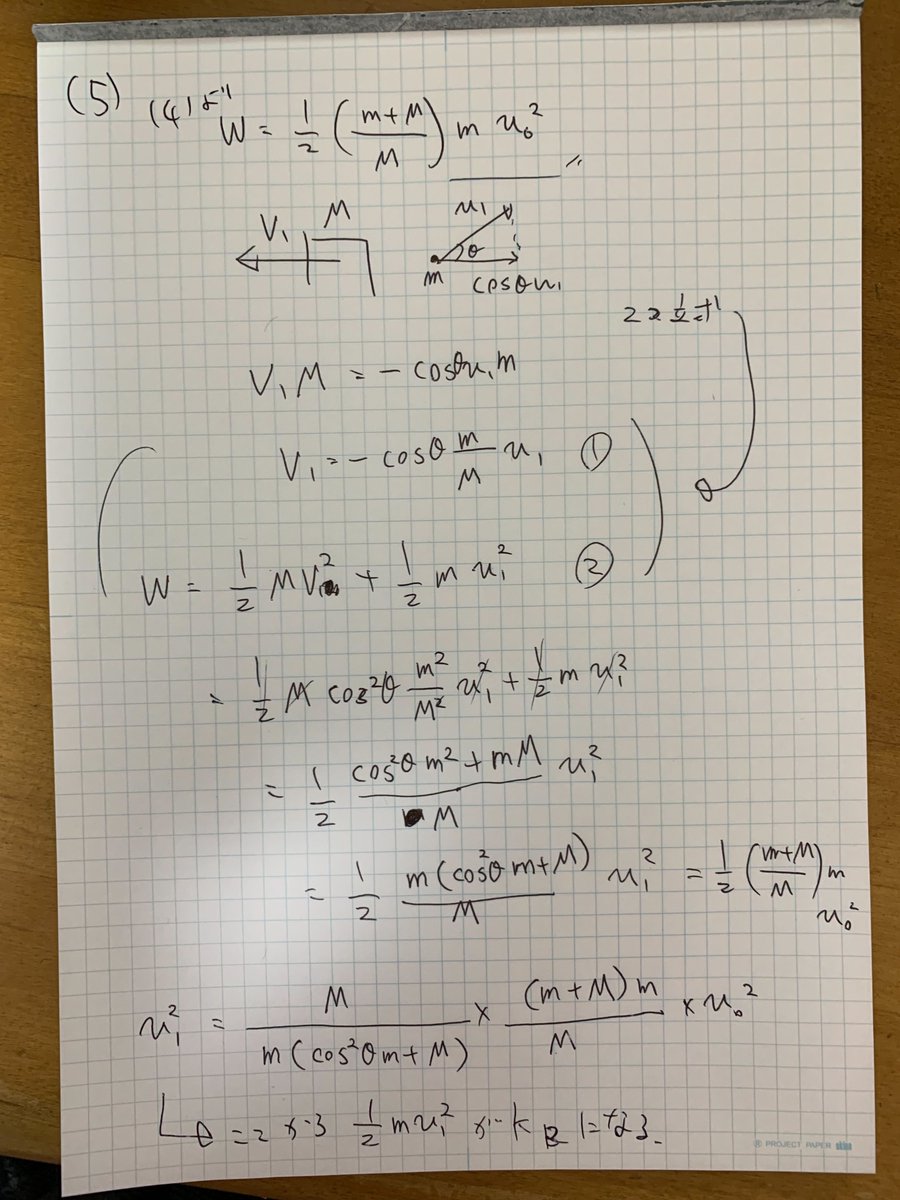 (5) (4)より
W = 1/2 ((m+M)/M) m u₀² 〃
V₁ M u₁ θ
m cosθu₁
V₁M = - cosθu₁m
V₁ = - cosθ m/M u₁ ①
W = 1/2 MV² + 1/2 m u₁² ②
= 1/2 M cos²θ m²/M² u₁² + 1/2 m u₁²
= 1/2 (cos²θ m² + mM)/M u₁²
= 1/2 m(cos²θ m+M)/M u₁² = 1/2 ((m+M)/M) m u₀²
u₁² = M/(m(cos²θ m+M)) × (m+M)m/M × u₀²
1/2 mu₁²
® PROJECT PAPER